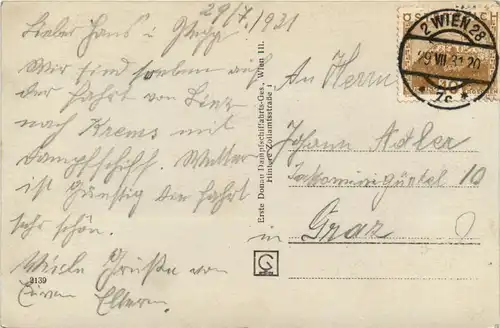 29/7./1931
Lieber Hans u.
Wir sind soeben auf
der Fahrt von Linz
nach Krems mit
Dampfschiff. Wetter
ist günstig der Fahrt
sehr schön.
Viele Grüße von
Euren Eltern.
9139
Erste Donau Dampfschiffahrts-Ges., Wien III.
Hintere Zollamtsstraße 1
2 WIEN 28
29.VII.31.20
* 7c *
An Herrn
Johann Adler
Jakominigürtel 10
in Graz